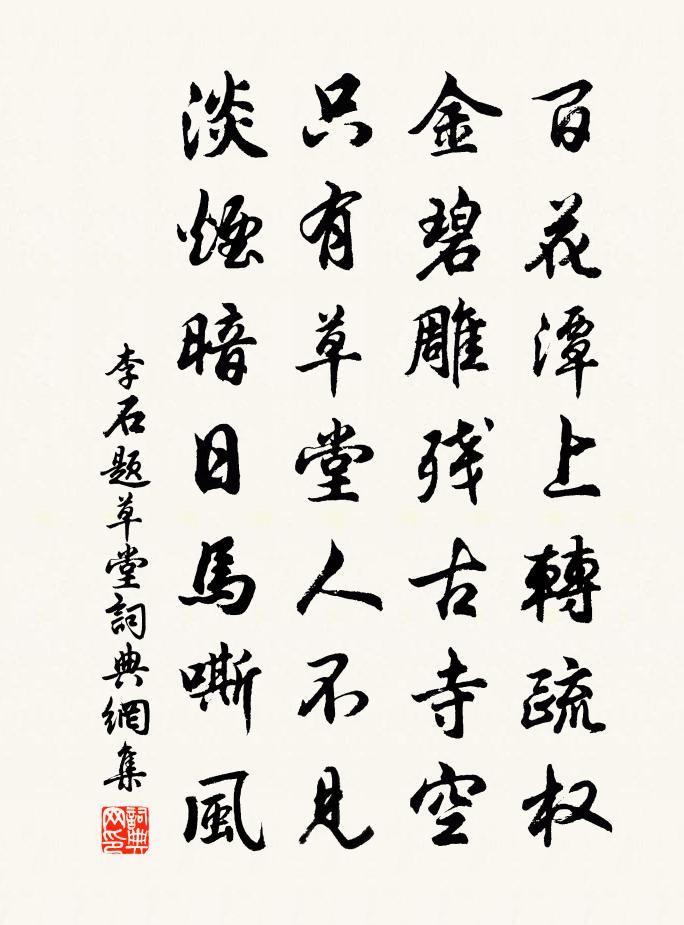 百花潭上轉疏权
金碧雕残古寺空
只有草堂人不見
淡煙暗日馬嘶風
李石題草堂詞典網集
詞典
网印